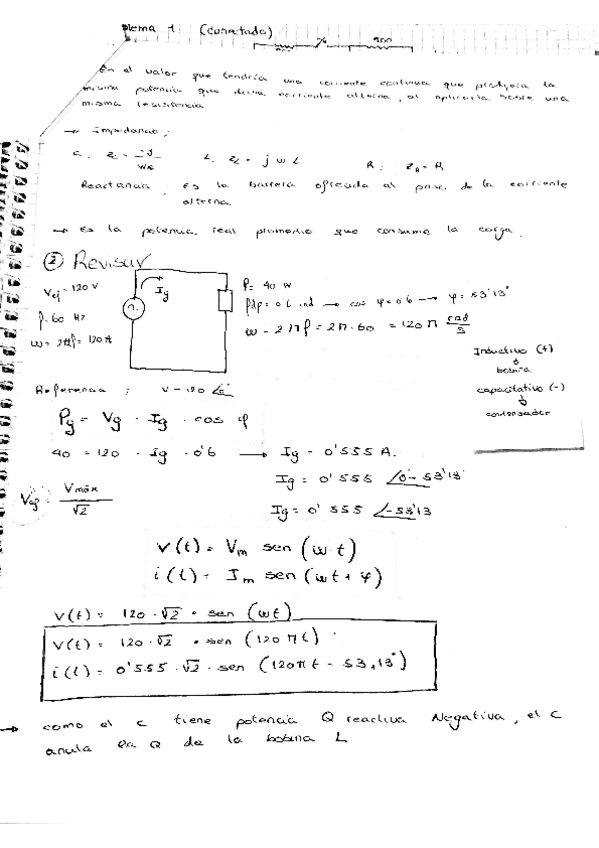 (conectado)
en el valor que tendría una corriente continua que produjera la
misma potencia que dicha corriente alterna, al aplicarla sobre una
misma resistencia
→ impedancia:
C: Zc = -j/wc L: ZL = j w L R: ZR = R
Reactancia: es la barrera ofrecida al paso de la corriente
alterna.
→ es la potencia real promedio que consume la carga.
② Revisar
Vef = 120 V
f = 60 Hz
w = 2πf = 120π
Ig
P = 40 W
fdp = 0'6 ind → cos φ = 0'6 → φ = 53'13°
w = 2πf = 2π·60 = 120π rad/s
Inductivo (+)
↓
bobina
capacitativo (-)
↓
condensador
Referencia: V = 120 ∠0°
Pg = Vg · Ig · cos φ
40 = 120 · Ig · 0'6 → Ig = 0'555 A.
Ig = 0'555 ∠0-53'13°
Ig = 0'555 ∠-53'13
Vef = Vmáx/√2
v(t) = Vm sen (w·t)
i(t) = Im sen (wt + φ)
v(t) = 120·√2 · sen (wt)
v(t) = 120·√2 · sen (120πt)
i(t) = 0'555·√2 · sen (120πt - 53,13°)
→ como el C tiene potencia Q reactiva Negativa, el C
anula la Q de la bobina L